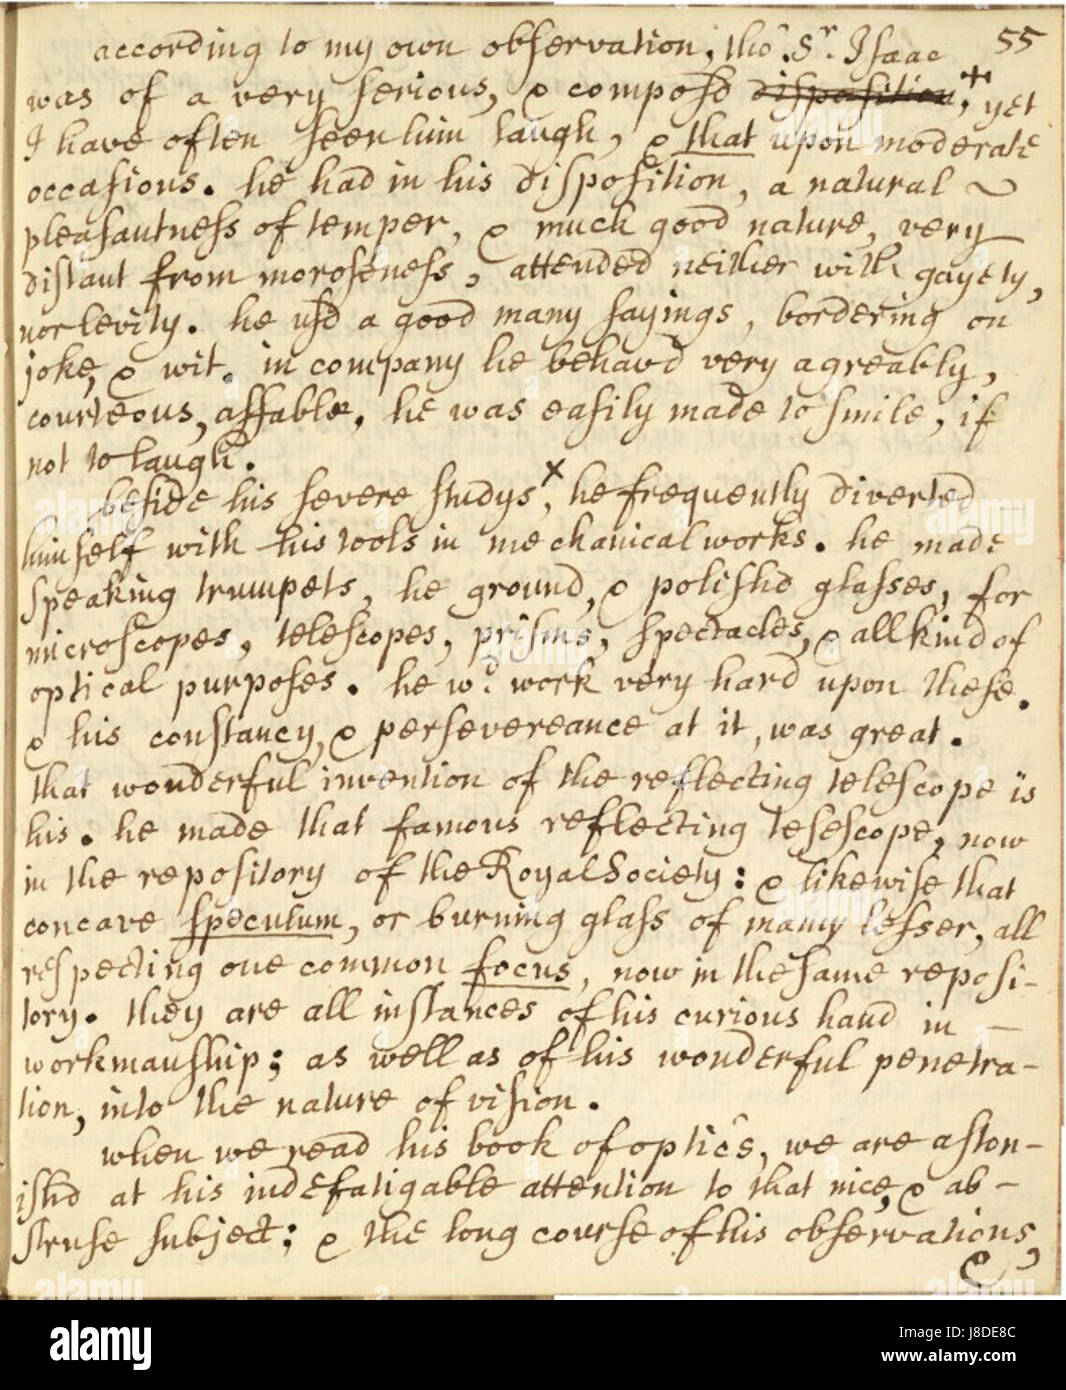 55
according to my own observation, tho'. Sr. Isaac
was of a very serious, & compos'd disposition,+ yet
I have often seen him laugh, & that upon moderate
occasions. he had in his disposition, a natural ~
pleasantness of temper, & much good nature, very
distant from moroseness, attended neither with gayety,
nor levity. he us'd a good many sayings, bordering on
joke, & wit. in company he behav'd very agreably,
courteous, affable, he was easily made to smile, if
not to laugh.
beside his severe studys,x he frequently diverted
himself with his tools in mechanical works. he made
speaking trumpets, he ground, & polish'd glasses, for
microscopes, telescopes, prisms, spectacles, & all kind of
optical purposes. he wd. work very hard upon these.
& his constancy, & perservereance at it, was great.
that wonderful invention of the reflecting telescope is
his. he made that famous reflecting tesescope, now
in the repository of the Royal Society: & likewise that
concave speculum, or burning glass of many lesser, all
respecting one common focus, now in the same reposi-
tory. they are all instances of his curious hand in —
workmanship; as well as of his wonderful penetra-
tion, into the nature of vision.
when we read his book of optics, we are aston-
ish'd at his indefatigable attention to that nice, & ab-
struse subject; & the long course of his observations,
&
alamy
Image ID: J8DE8C
www.alamy.com